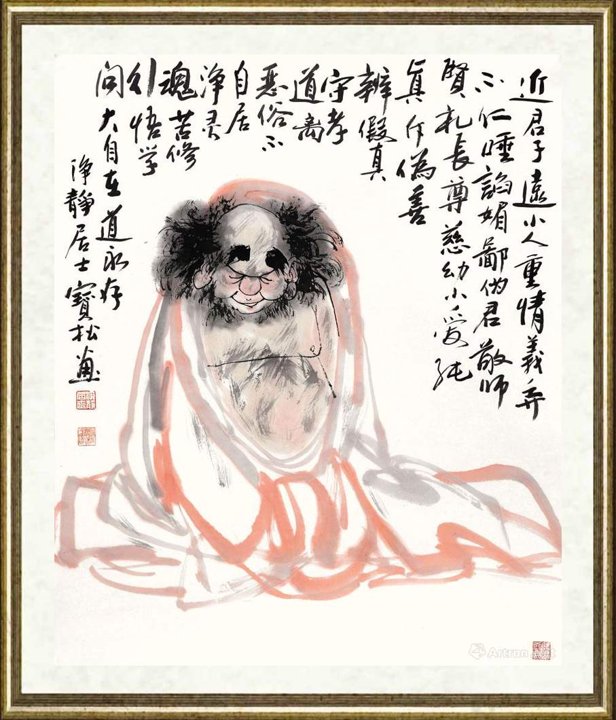 近君子遠小人重情義弃
不仁唾諂媚鄙伪君敬師
賢礼長尊慈幼小爱純
真斥偽善
辨假真
守孝
道离
惡俗不
自居
淨灵
魂苦修
行悟学
问大自在道永存
淨靜居士寶松画
Artron